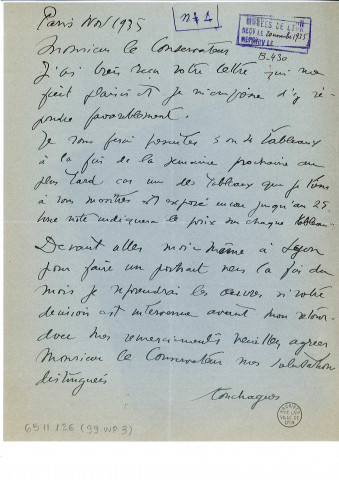 Paris Nov 1935
n° 1
MUSÉES DE LYON
REÇU LE 20 novembre 1935
RÉPONDU LE
B-430
Monsieur le Conservateur
J'ai bien reçu votre lettre qui me
fait plaisir et je m'empresse d'y ré-
pondre favorablement.
Je vous ferai parvenir 3 ou 4 tableaux
à la fin de la semaine prochaine au
plus tard car un des tableaux que je tiens
à vous montrer est exposé encore jusqu'au 25
Une note indiquera le prix sur chaque tableau.
Devant aller moi-même à Lyon
pour faire un portrait vers la fin du
mois je reprendrai les œuvres si votre
décision est intervenue avant mon retour.
Avec mes remerciements veuillez agréer
Monsieur le Conservateur mes salutations
distinguées
Touchagues
VILLE DE
LYON
65 II 126 (99 WP 3)